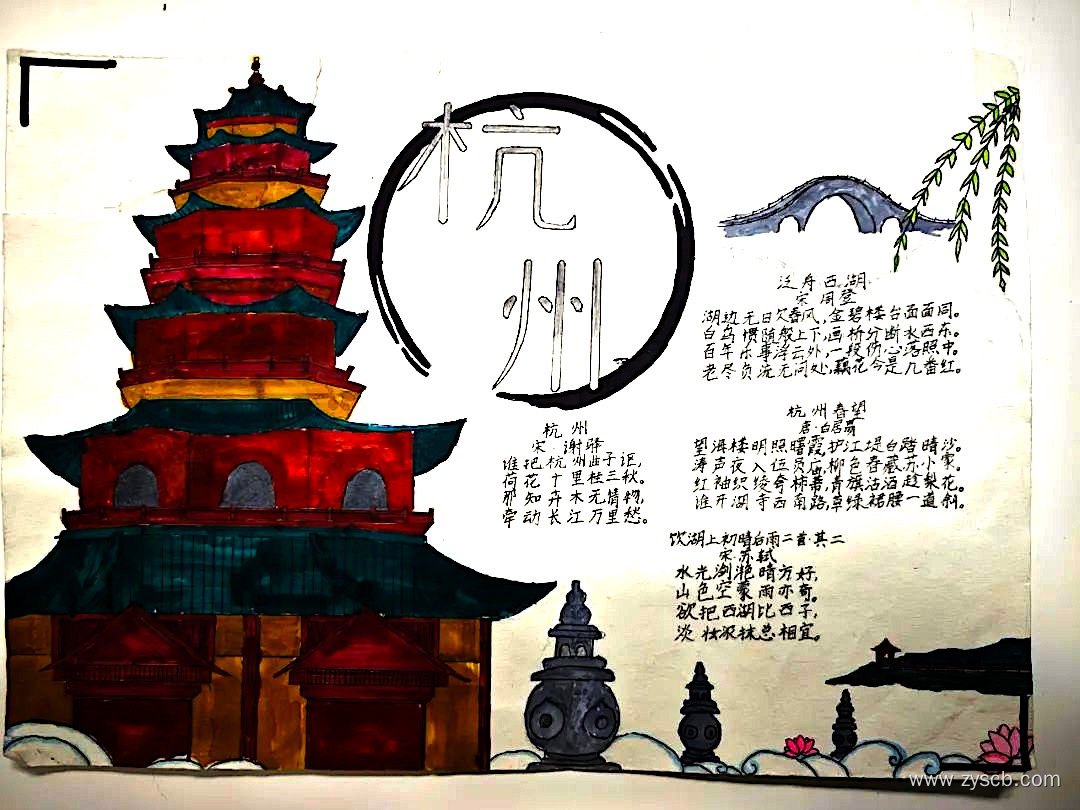 杭
州
泛舟西湖
宋 周登
湖边无日欠春风,金碧楼台面面同。
白鸟惯随般上下,画桥分断水西东。
百年乐事浮云外,一段伤心落照中。
老尽负流无问处,藕花今是几番红。
杭州
宋·谢驿
谁把杭州曲子讴,
荷花十里桂三秋。
那知卉木无情物,
牵动长江万里愁。
杭州春望
唐·白居易
望海楼明照曙霞,护江堤白踏晴沙。
涛声夜入伍员庙,柳色春藏苏小家。
红袖织绫夸柿蒂,青旗沽酒趁梨花。
谁开湖寺西南路,草绿裙腰一道斜。
饮湖上初晴后雨二首·其二
宋·苏轼
水光潋滟晴方好,
山色空蒙雨亦奇。
欲把西湖比西子,
淡妆浓抹总相宜。
www.zyscb.com